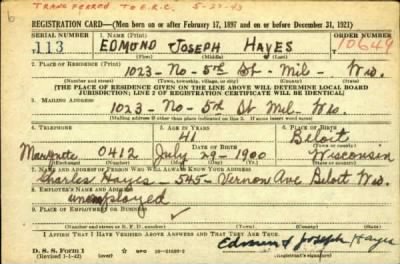 TRANSFERRED TO E.R.C. 5-27-43
REGISTRATION CARD—(Men born on or after February 17, 1897 and on or before December 31, 1921)
SERIAL NUMBER 1. NAME (Print) ORDER NUMBER
113 EDMOND JOSEPH HAYES 10649
(First) (Middle) (Last)
2. PLACE OF RESIDENCE (Print)
1023 - No - 5th St - Mil - Wis.
(Number and street) (Town, township, village, or city) (County) (State)
[THE PLACE OF RESIDENCE GIVEN ON THE LINE ABOVE WILL DETERMINE LOCAL BOARD
JURISDICTION; LINE 2 OF REGISTRATION CERTIFICATE WILL BE IDENTICAL]
3. MAILING ADDRESS
1023 - No - 5th St Mil - Wis.
[Mailing address if other than place indicated on line 2. If same insert word same]
4. TELEPHONE 5. AGE IN YEARS 6. PLACE OF BIRTH
41 Beloit
Marquette 0412 July 29 - 1900 Wisconsin
7. NAME AND ADDRESS OF PERSON WHO WILL ALWAYS KNOW YOUR ADDRESS
Charles Hayes - 545 - Vernon Ave Beloit Wis.
8. EMPLOYER'S NAME AND ADDRESS
unemployed
9. PLACE OF EMPLOYMENT OR BUSINESS
(Number and street or R. F. D. number) (Town) (County) (State)
I AFFIRM THAT I HAVE VERIFIED ABOVE ANSWERS AND THAT THEY ARE TRUE.
D. S. S. Form 1
(Revised 1-1-42) GPO Edmund Joseph Hayes